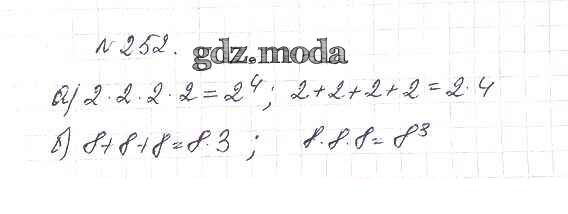 №252.
gdz.moda
а) 2·2·2·2=2⁴; 2+2+2+2=2·4
б) 8+8+8=8·3; 8·8·8=8³